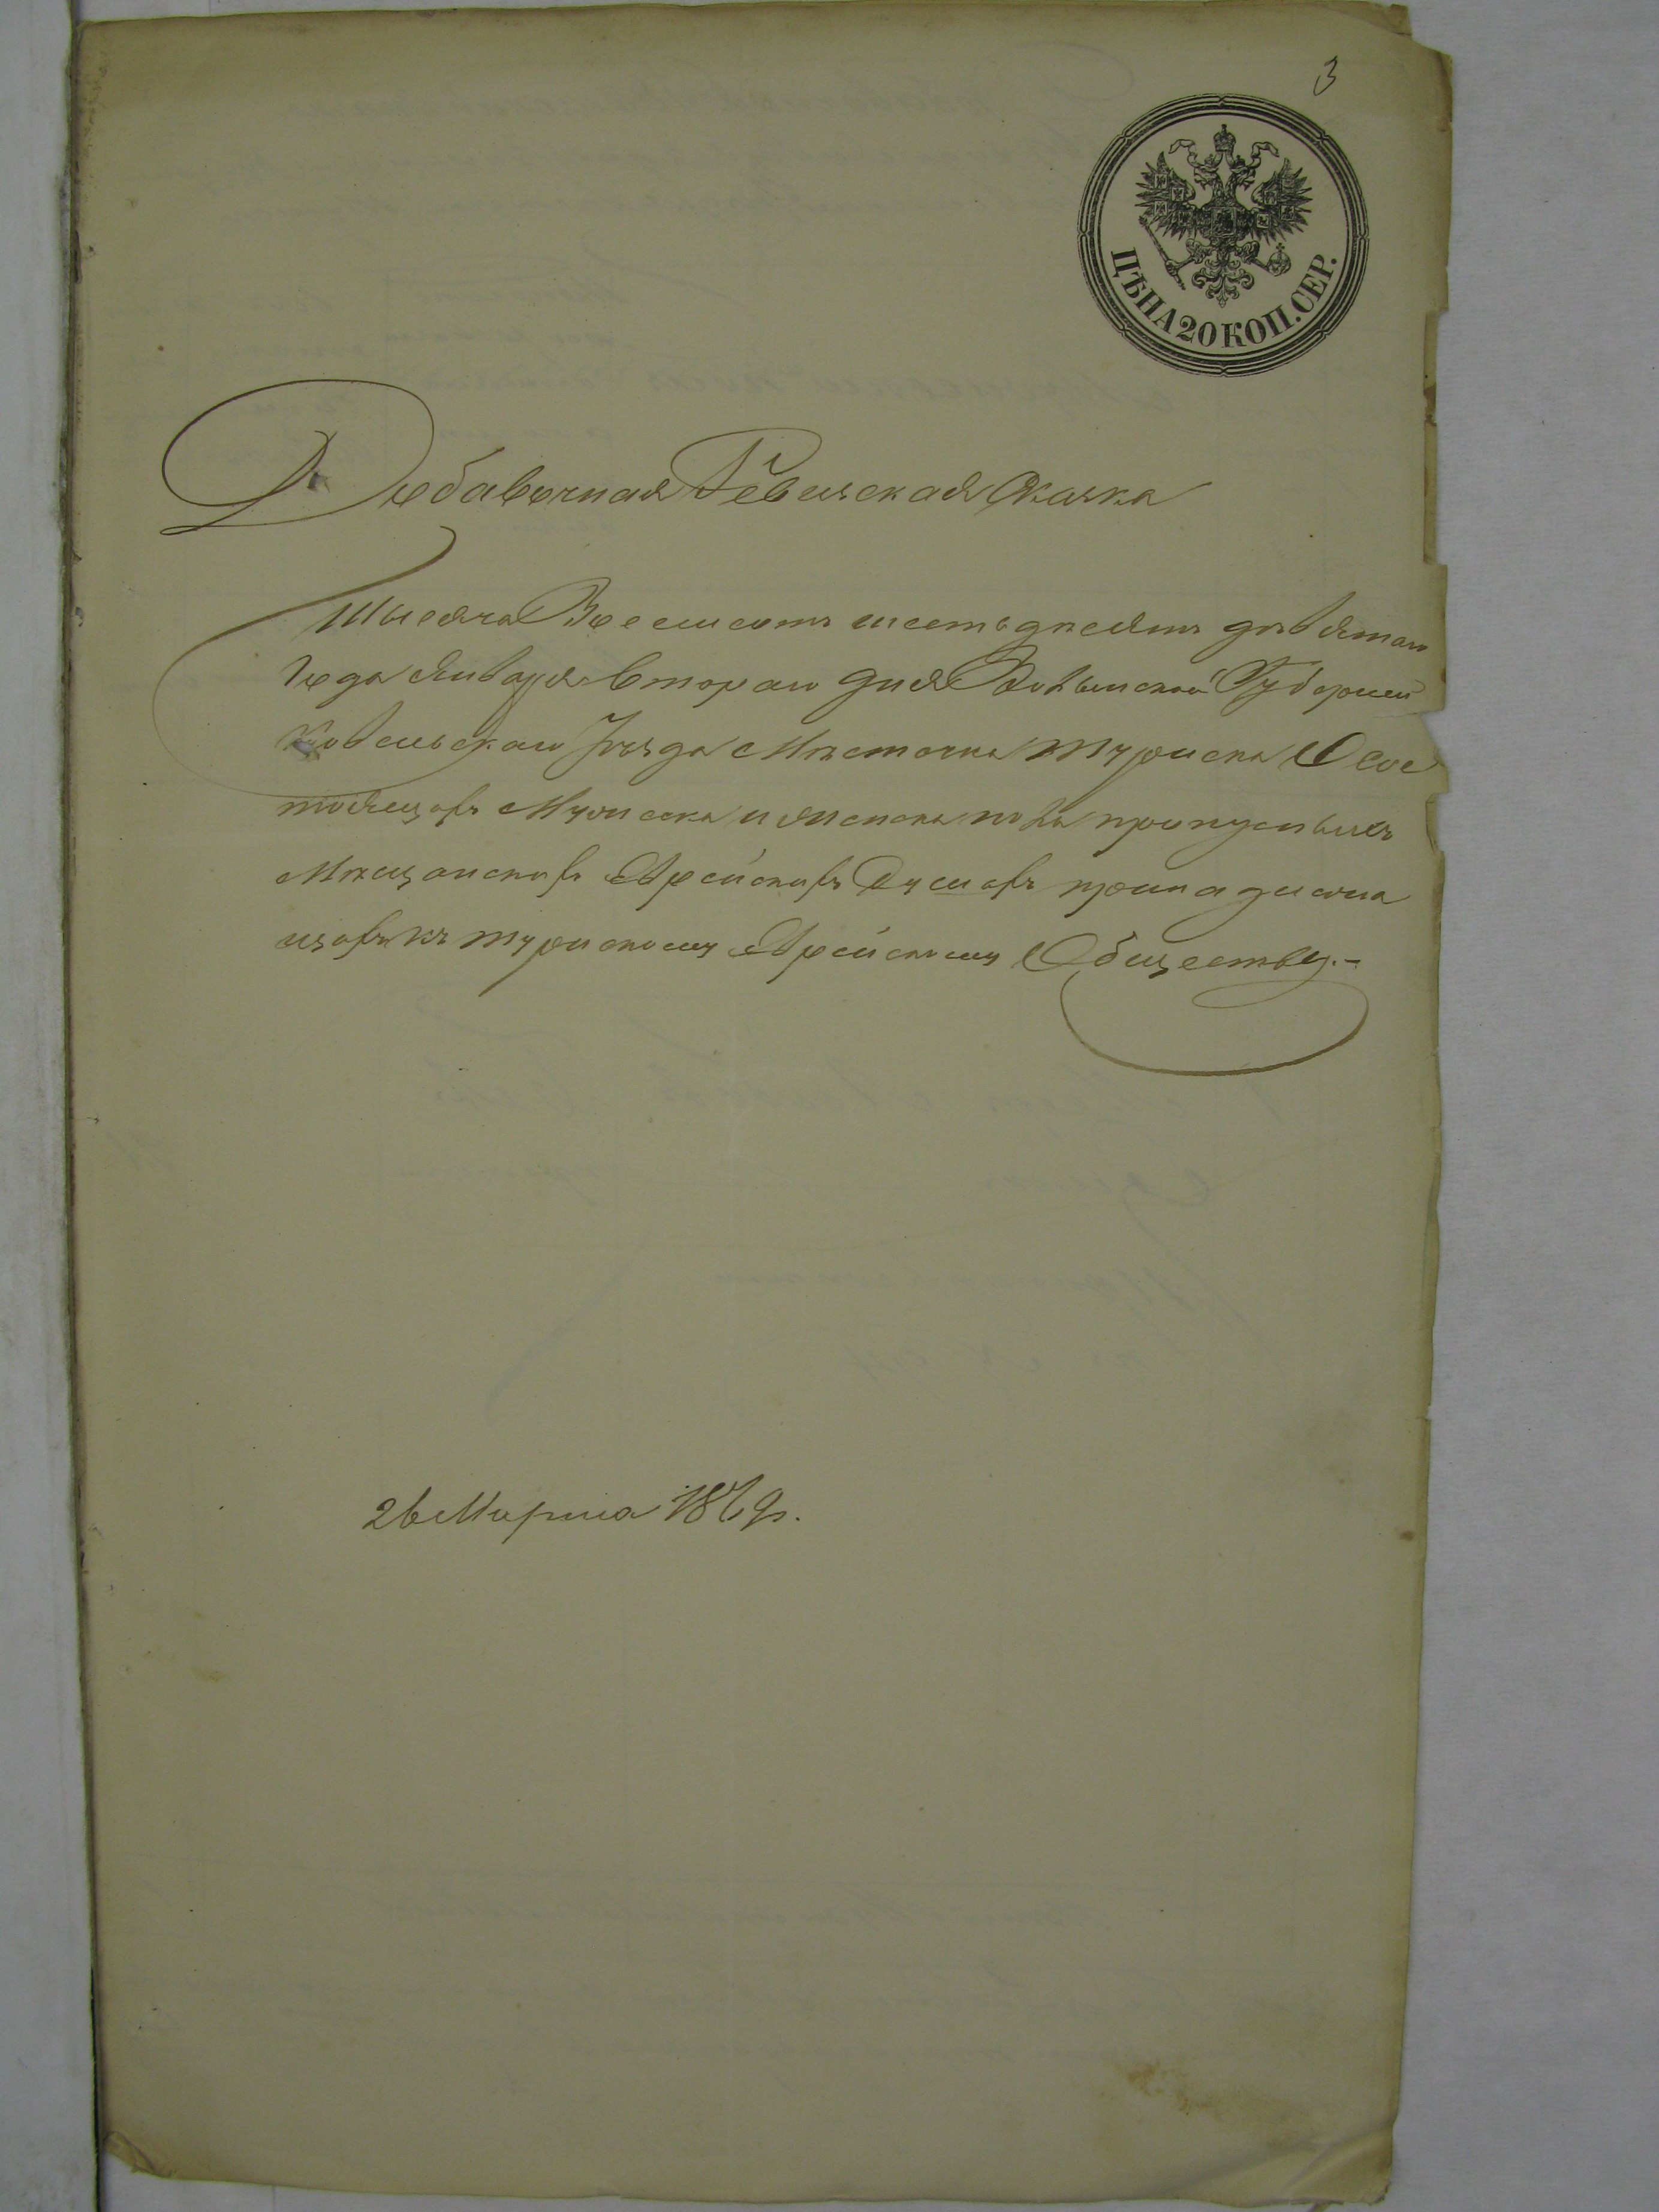 3
ЦѢНА 20 КОП. СЕР.
Добавочная Ревизская Сказка
Тысяча Восемсотъ шестьдесятъ девятаго
Года Января втораго дня Волынской Губернии
Ковельскаго Уѣзда Мѣстечка Турииска О сос
тоящихъ Мужеска и Женска пола пропусныхъ
Мѣщанскихъ Еврейскихъ Душахъ принадлежа
щихъ къ Турискому Еврейскому Обществу.-
26 Марта 1869 г.